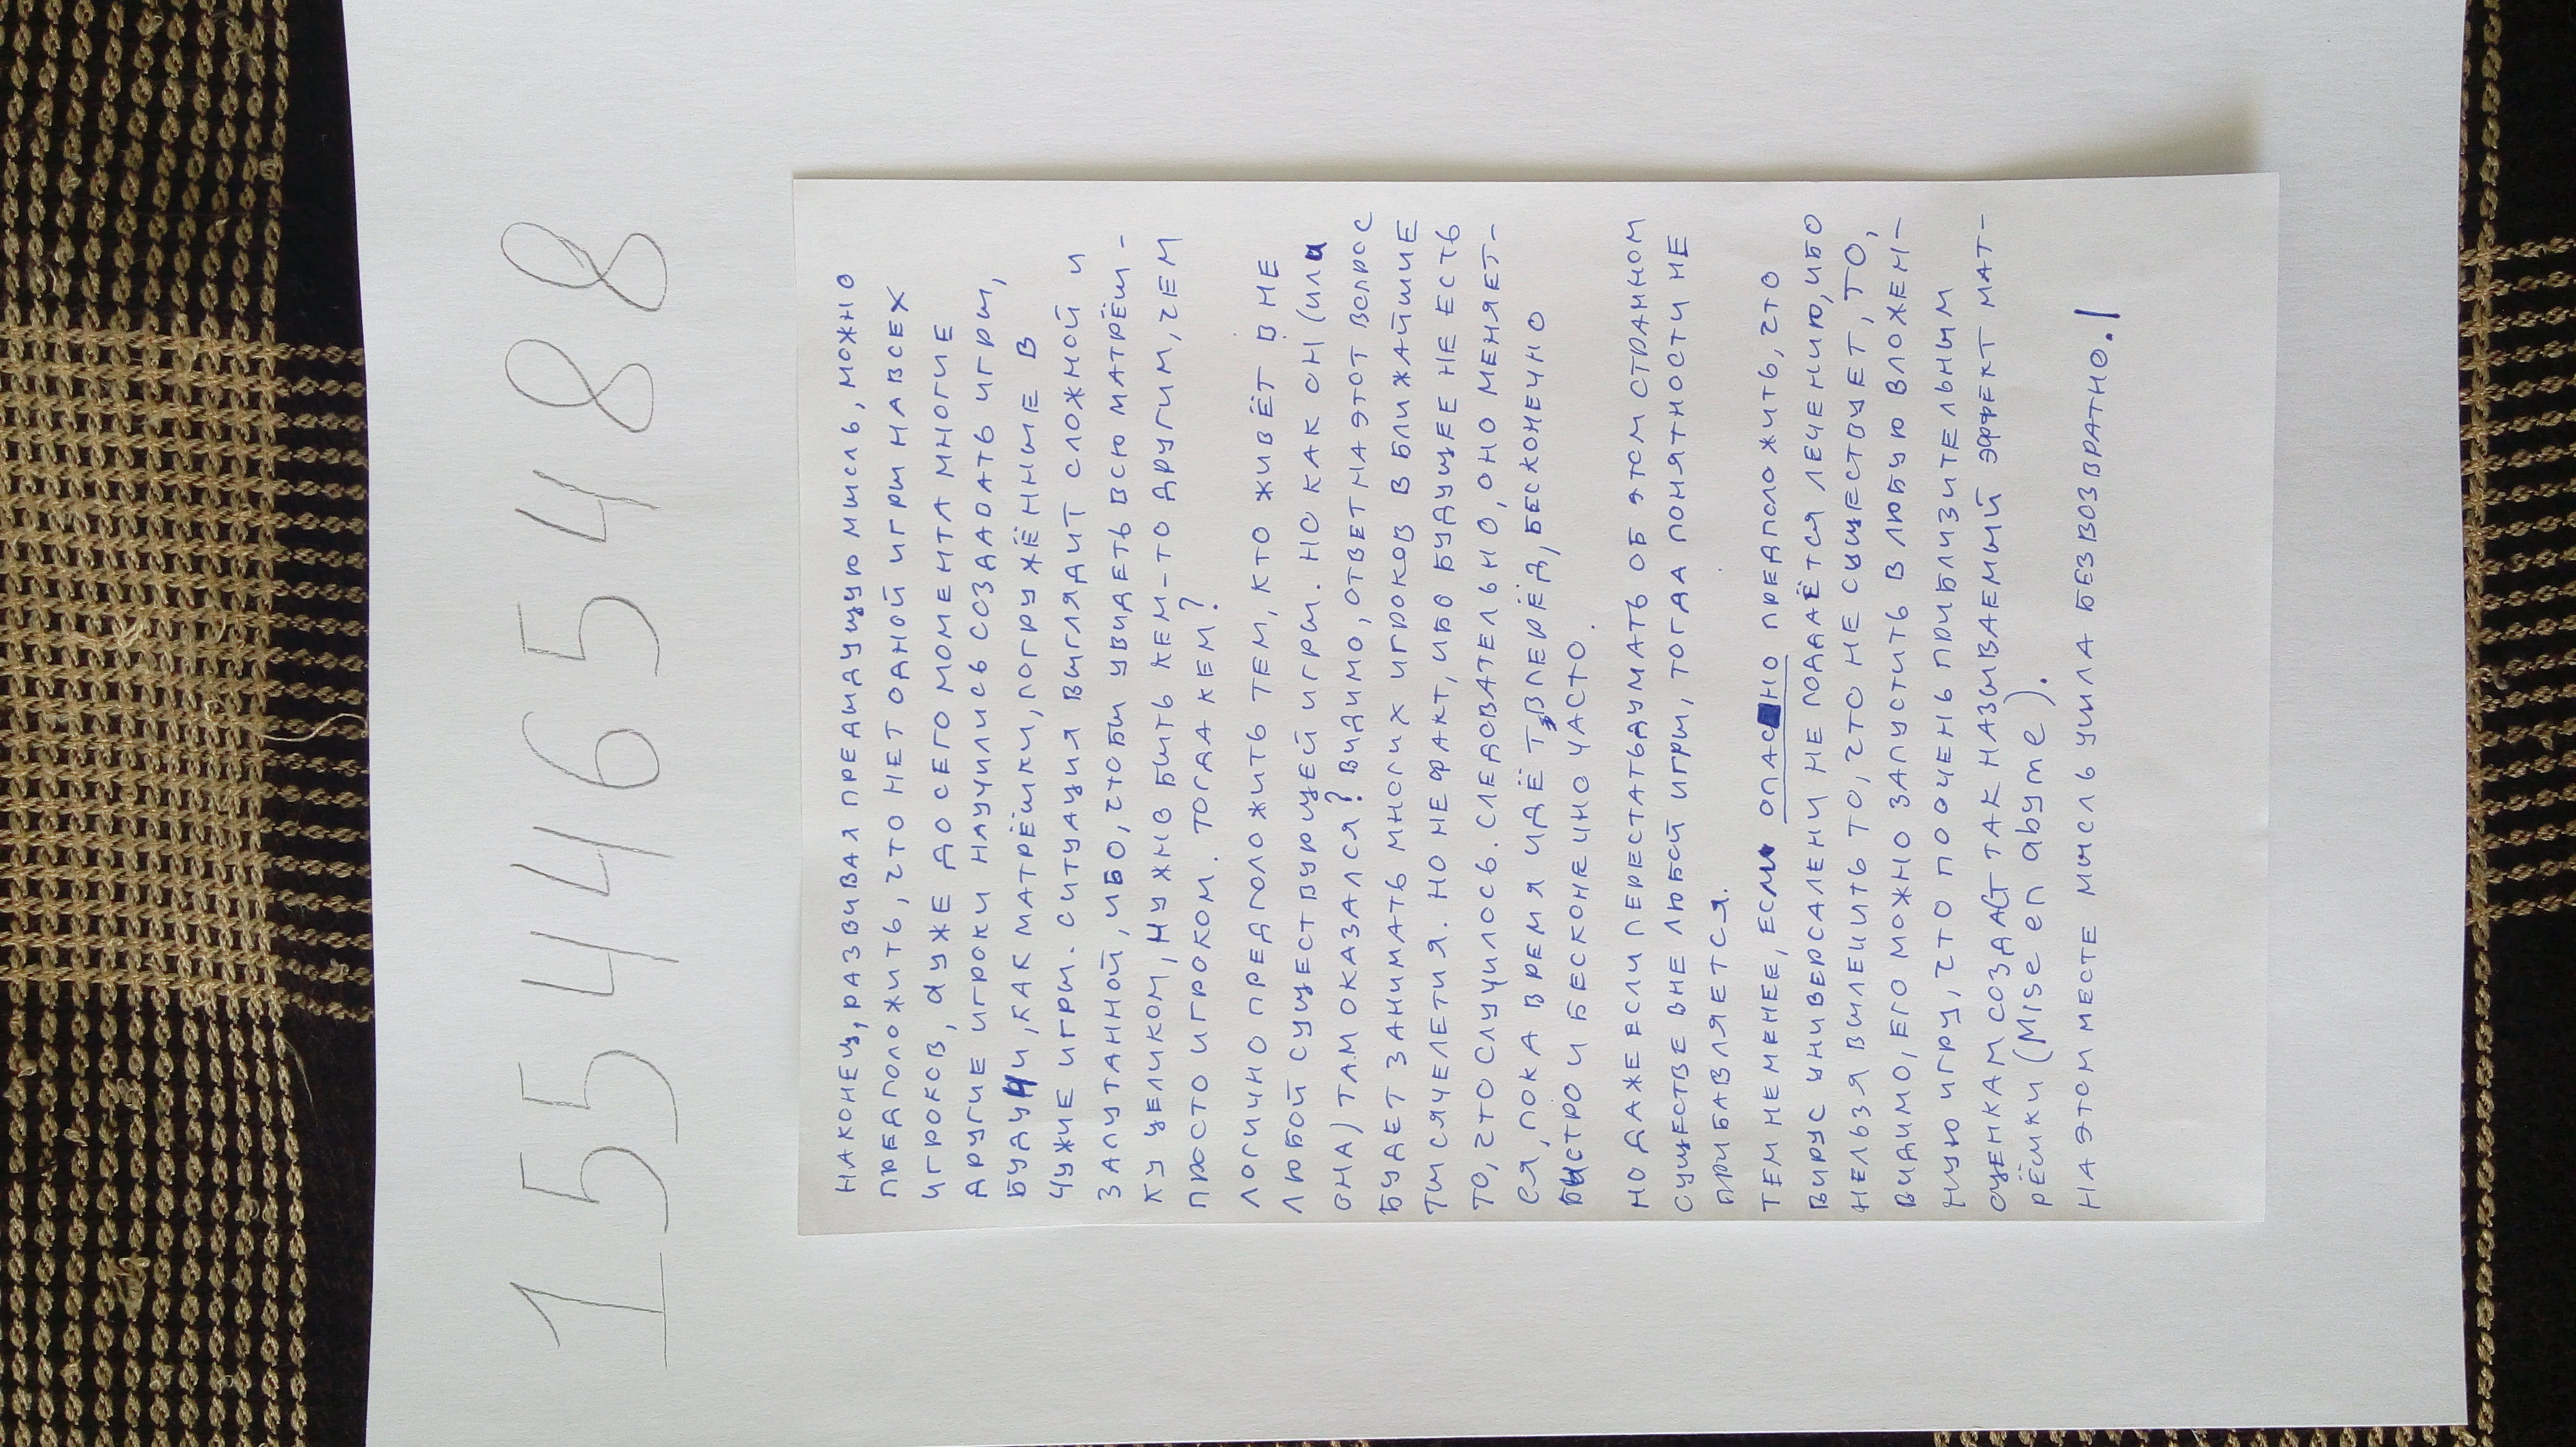 155465488
НАКОНЕЦ, РАЗВИВАЯ ПРЕДИДУЩУЮ МИСЛЬ, МОЖНО
ПРЕДПОЛОЖИТЬ, ЧТО НЕТ ОДНОЙ ИГРИ НА ВСЕХ
ИГРОКОВ, а УЖЕ ДО СЕГО МОМЕНТА МНОГИЕ
ДРУГИЕ ИГРОКИ НАУЧИЛИСЬ СОЗДАВАТЬ ИГРИ,
БУДУЧИ, КАК МАТРЁШКИ, ПОГРУЖЁННИЕ В
ЧУЖИЕ ИГРИ. СИТУАЦИЯ ВИГЛЯДИТ СЛОЖНОЙ И
ЗАПУТАННОЙ, ИБО, ЧТОБИ УВИДЕТЬ ВСЮ МАТРЁШ-
КУ ЦЕЛИКОМ, НУЖНО БИТЬ КЕМ-ТО ДРУГИМ, ЧЕМ
ПРОСТО ИГРОКОМ. ТОГДА КЕМ?
ЛОГИЧНО ПРЕДПОЛОЖИТЬ ТЕМ, КТО ЖИВЁТ ВНЕ
ЛЮБОЙ СУЩЕСТВУЮЩЕЙ ИГРИ. НО КАК ОН (ИЛИ
ОНА) ТАМ ОКАЗАЛСЯ? ВИДИМО, ОТВЕТ НА ЭТОТ ВОПРОС
БУДЕТ ЗАНИМАТЬ МНОГИХ ИГРОКОВ В БЛИЖАЙШИЕ
ТИСЯЧЕЛЕТИЯ. НО НЕ ФАКТ, ИБО БУДУЩЕЕ НЕ ЕСТЬ
ТО, ЧТО СЛУЧИЛОСЬ. СЛЕДОВАТЕЛЬНО, ОНО МЕНЯЕТ-
СЯ, ПОКА ВРЕМЯ ИДЁТ ВПЕРЁД, БЕСКОНЕЧНО
БЫСТРО И БЕСКОНЕЧНО ЧАСТО.
НО ДАЖЕ ЕСЛИ ПЕРЕСТАТЬ ДУМАТЬ ОБ ЭТОМ СТРАННОМ
СУЩЕСТВЕ ВНЕ ЛЮБОЙ ИГРИ, ТОГДА ПОНЯТНОСТИ НЕ
ПРИБАВЛЯЕТСЯ.
ТЕМ НЕ МЕНЕЕ, ЕСЛИ ОПАСНО ПРЕДПОЛОЖИТЬ, ЧТО
ВИРУС УНИВЕРСАЛЕН И НЕ ПОДДАЁТСЯ ЛЕЧЕНИЮ, ИБО
НЕЛЬЗЯ ВИЛЕЧИТЬ ТО, ЧТО НЕ СУЩЕСТВУЕТ, ТО,
ВИДИМО, ЕГО МОЖНО ЗАПУСТИТЬ В ЛЮБУЮ ВЛОЖЕН-
НУЮ ИГРУ, ЧТО ПО ОЧЕНЬ ПРИБЛИЗИТЕЛЬНЫМ
ОЦЕНКАМ СОЗДАСТ ТАК НАЗИВАЕМИЙ ЭФФЕКТ МАТ-
РЁШКИ (Mise en abyme).
НА ЭТОМ МЕСТЕ МЫСЛЬ УШЛА БЕЗВОЗВРАТНО.!